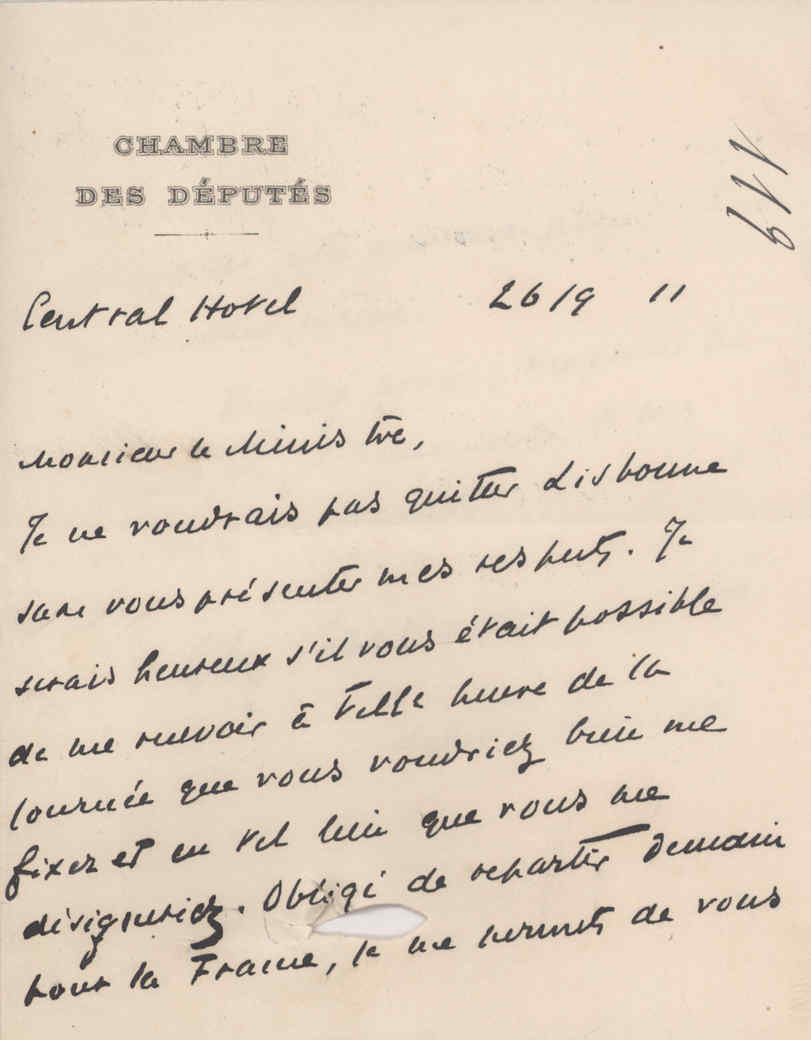 CHAMBRE
DES DÉPUTÉS
119
Central Hotel 26/9 11
Monsieur le Ministre,
Je ne voudrais pas quitter Lisbonne
sans vous présenter mes respects. Je
serais heureux s'il vous était possible
de me recevoir à telle heure de la
journée que vous voudriez bien me
fixer et en tel lieu que vous me
désigneriez. Obligé de repartir demain
pour la France, je me permets de vous